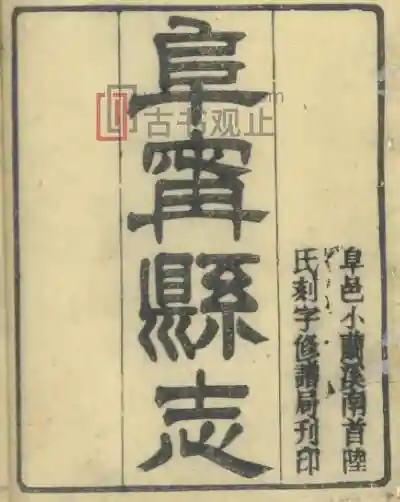 阜甯縣志
阜邑小蘭溪南首陸
氏刻字修譜局刊印
古书观止